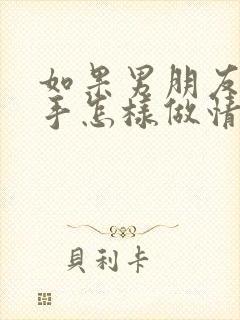 如果男朋友
手怎樣做情
貝利卡